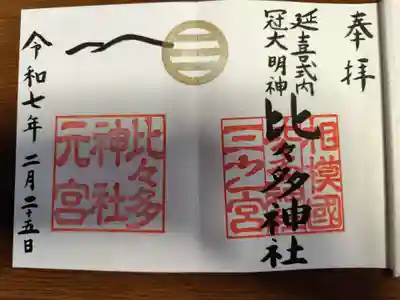 奉拝
延喜式内
冠大明神
比々多神社
相模國
三之宮
比々多
神社
元宮
令和七年二月二十五日